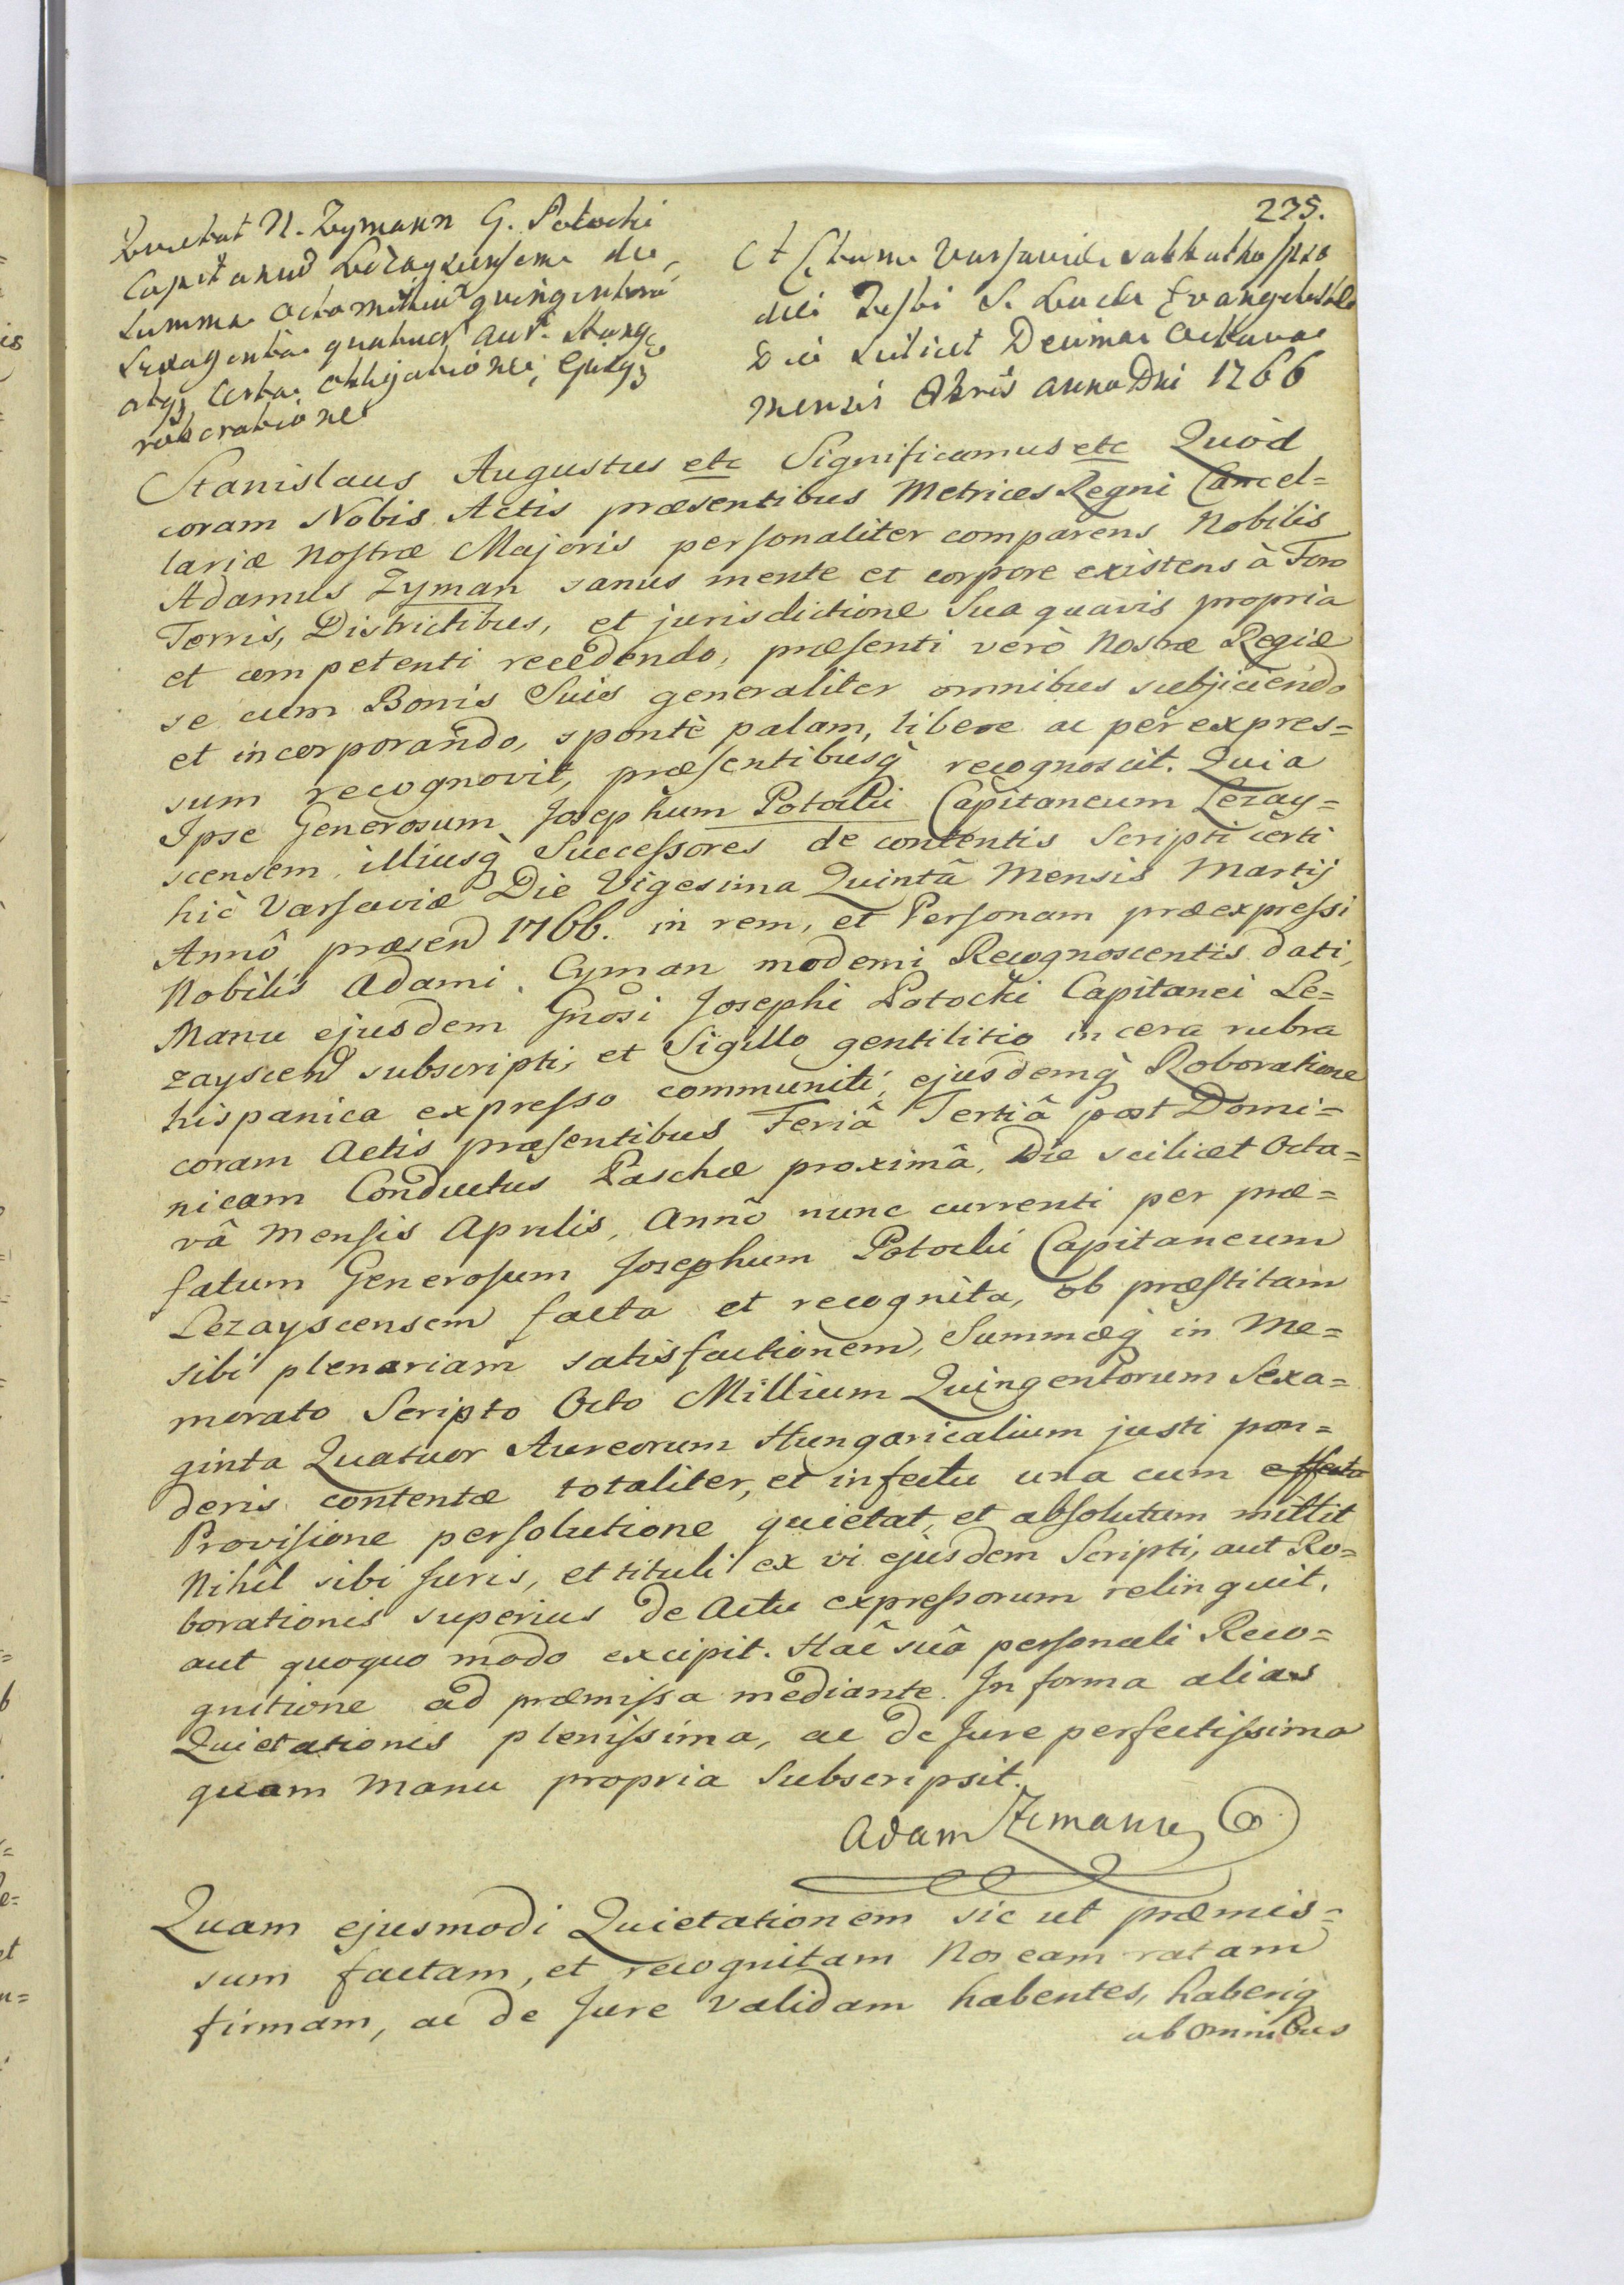 235.
Quietat N. Zymann G. Potocki
Capitaneū Leżayscensem de
Summa Octo milliū quingentorū
Sexaginta quatuor Aur. Hung.
atq3 certa obligatione, ejusq3
roboratione
Actum Varsaviæ Sabbatho ipso
die Festi S. Lucæ Evangelistæ
Die Scilicet Decima Octava
Mensis Obris Anno Dni 1766
Stanislaus Augustus etc Significamus etc Quòd
coram Nobis Actis præsentibus Metrices Regni Cancel=
lariæ Nostræ Majoris personaliter comparens Nobilis
Adamus Zyman sanus mente et corpore existens à Foro
Terris, Districtibus, et jurisdictione Sua quavis propria
et competenti recedendo, præsenti verò Nostræ Regiæ
se cum Bonis Suis generaliter omnibus subjiciendo
et incorporando, spontè palam, libere ac per expres=
sum recognovit, præsentibusq̀ recognoscit. Quia
Ipse Generosum Josephum Potocki Capitaneum Lezay=
scensem, illiusq̀ Successores de contentis Scripti certi
hic Varsaviæ Die Vigesima Quintâ Mensis Martij
Annô præsen 1766. in rem, et Personam præexpressi
Nobilis Adami Cyman moderni Recognoscentis dati,
Manu ejusdem Gnosi Josephi Potocki Capitanei Le=
zayscen subscripti, et Sigillo gentilitio in cera rubra
hispanica expresso communiti, ejusdemq̀ Roboratione
coram Actis præsentibus Feriâ Tertiâ post Domi=
nicam Conductus Paschæ proximâ, Die scilicet Octa=
vâ Mensis Aprilis, Annô nunc currenti per præ=
fatum Generosum Josephum Potocki Capitaneum
Lezayscensem facta et recognita, ob præstitam
sibi plenariam satisfactionem, Summæq̀ in Me=
morato Scripto Octo Millium Quingentorum Sexa=
ginta Quatuor Aureorum Hungaricalium justi pon=
deris contentæ totaliter, et in fectu una cum effecta
Provisione persolutione quietat, et absolutum mittit
Nihil sibi Juris, et tituli ex vi ejusdem Scripti, aut Ro=
borationis superius de Actu expressorum relinquit,
aut quoquo modo excipit. Hac suâ personali Reco=
gnitione ad præmissa mediante. In forma alias
Quietationis plenissima, ac de Jure perfectissima
quam Manu propria Subscripsit.
Adam Zimann
Quam ejusmodi Quietationem sic ut præmis=
sum factam, et recognitam Nos eam ratam
firmam, ac de Jure validam habentes, haberiq̀
ab omnibus